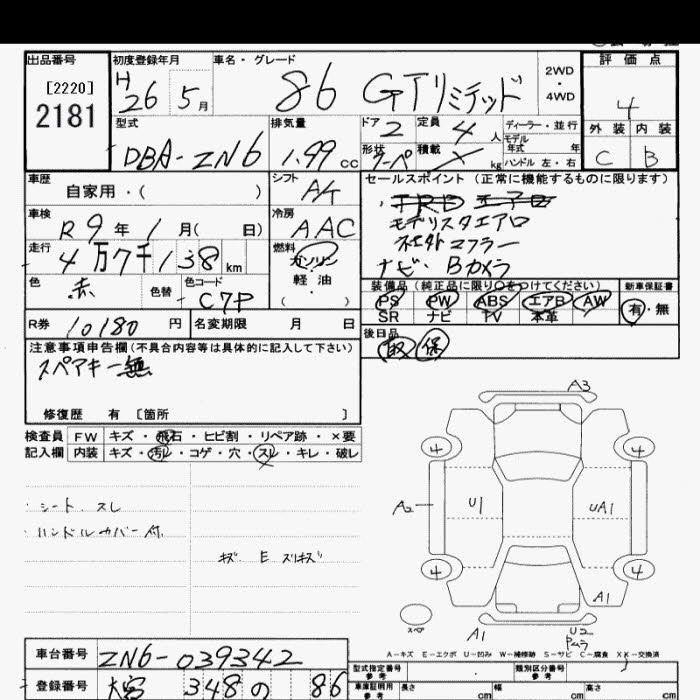 出品番号
[2220]
2181
初度登録年月
H 26 5月
車名・グレード
86 GTリミテッド
2WD
・
4WD
評価点
4
外装 内装
C B
型式
DBA-ZN6
排気量
1.99 cc
ドア 2
定員 4 人
形状 クーペ
積載 kg
ディーラー・並行
モデル年式 年
ハンドル 左・右
車歴
自家用・( )
シフト
冷房
AAC
車検
R9年1月( 日)
走行
4万7千138km
燃料
ガソリン
軽油
( )
色
赤
色替
色コード
C7P
R券 10180円
名変期限 月 日
セールスポイント (正常に機能するものに限ります)
・TRD エアロ
モデリスタエアロ
社外マフラー
ナビ・Bカメラ
装備品(純正品に限り○をつけてください)
PS PW ABS エアB AW
SR ナビ TV 本革
新車保証書
有・無
後日品
取 保
注意事項申告欄(不具合内容等は具体的に記入して下さい)
スペアキー無
修復歴 有 [箇所 ]
検査員記入欄
FW キズ・飛石・ヒビ割・リペア跡・×要
内装 キズ・汚レ・コゲ・穴・スレ・キレ・破レ
・シート スレ
・ハンドルカバー付
キズ E スリキズ
A3
4 4
A2 U1 UA1
4 4
A1
スペア
A1 U2
A-キズ E-エクボ U-凹み W-補修跡 S-サビ C-腐食 XX-交換済
車台番号 ZN6-039342
登録番号 大宮 348 の 86
型式指定番号
類別区分番号
参考
車庫証明用参考
長さ cm
幅 cm
高さ cm